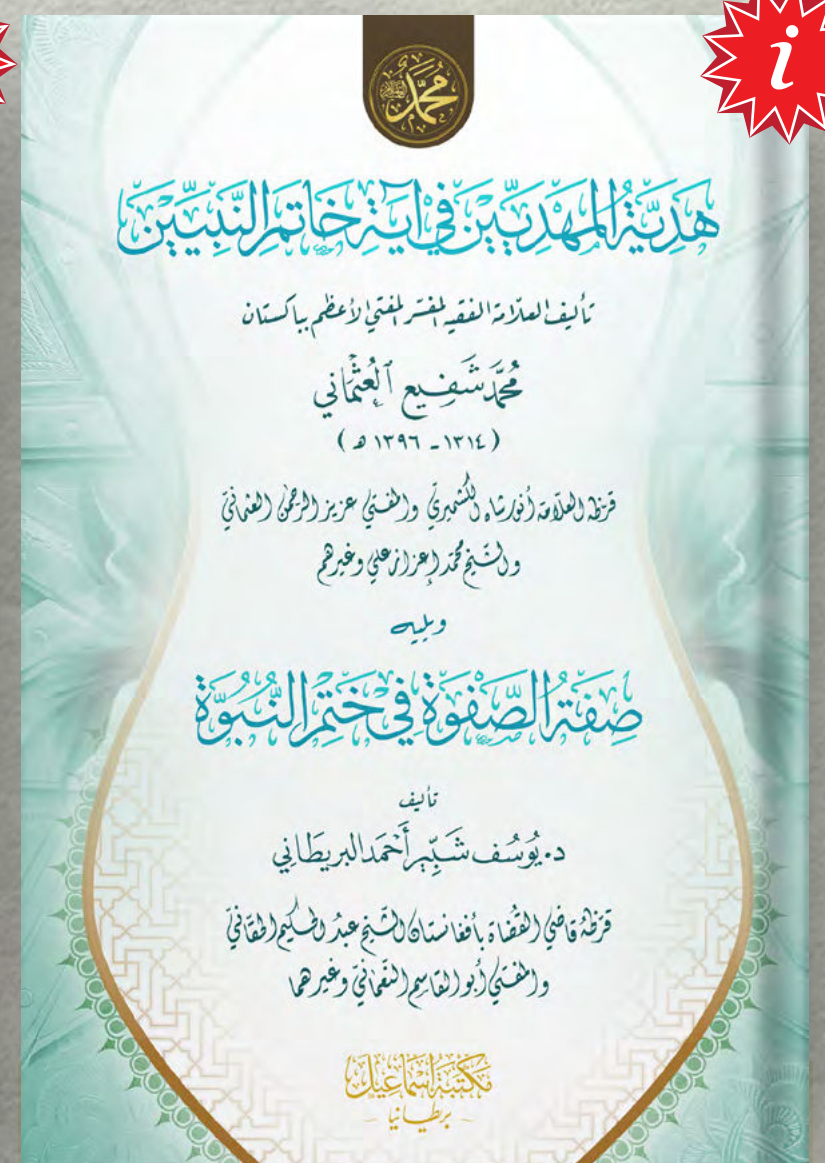 i
محمد ﷺ
هَدِيَّةُ المَهْدِيِّينَ فِي آيَةِ خَاتَمِ النَّبِيِّينَ
تأليف العلّامة الفقيه المفسّر المفتي الأعظم بباكستان
مُحَمَّد شَفِيع العُثْمَاني
( ١٣١٤ - ١٣٩٦ هـ )
قرّظه العلّامة أنور شاه الكشميريّ والمفتي عزيز الرحمن العثمانيّ
والشيخ محمّد إعزاز علي وغيرهم
ويليه
صِفَةُ الصَّفْوَةِ فِي خَتْمِ النُّبُوَّةِ
تأليف
د. يُوسُف شَبِّير أَحْمَد البريطَانِي
قرّظه قاضي القضاة بأفغانستان الشيخ عبد الحكيم الحقّانيّ
والمفتي أبو القاسم النعمانيّ وغيرهما
مَكْتَبَة إِسْمَاعِيل
- بريطانيا -